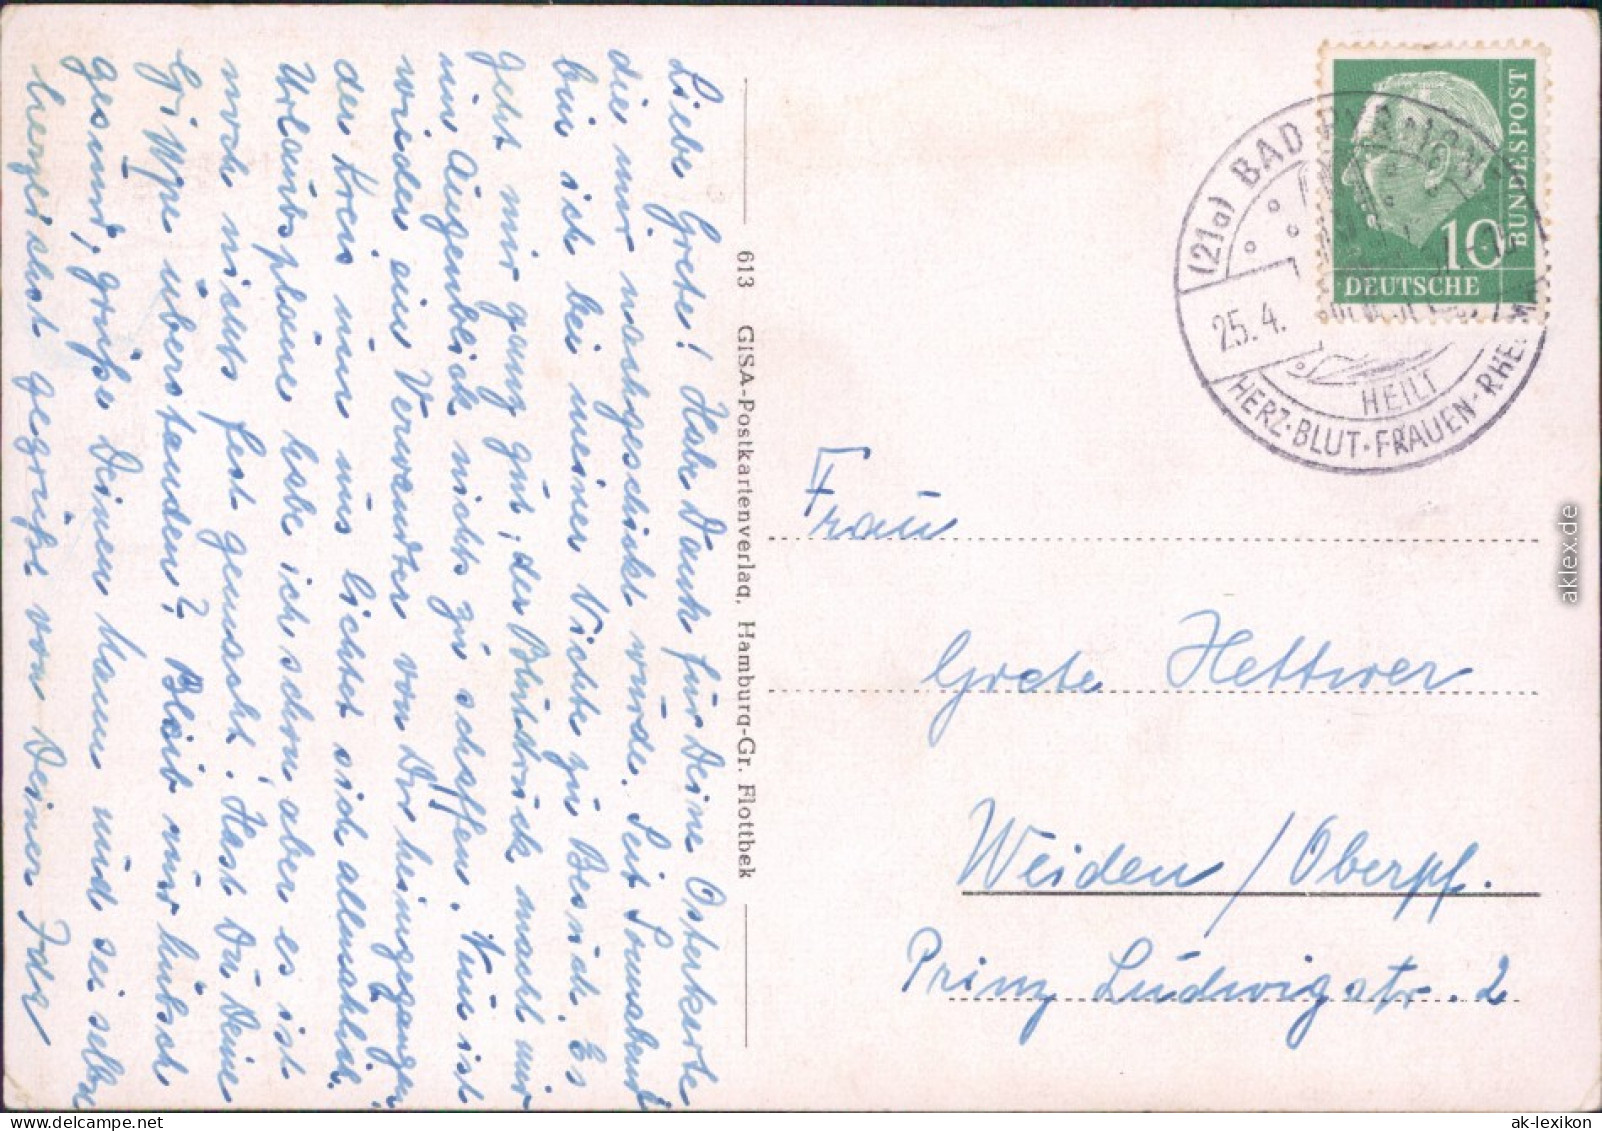 Liebe Grete! Habe Dank für Deine Osterkarte
die mir nachgeschickt wurde. Seit Sonnabend
bin ich bei meiner Nichte zu Besuch. Es
geht mir ganz gut, der Blutdruck macht mir
im Augenblick nicht zu schaffen. Nun ist
wieder ein Verwandter von Dor heimgegangen
der Kreis um uns lichtet sich allmählich.
Urlaubspläne habe ich schon, aber es ist
noch nichts fest gemacht. Hast Du Deine
Grippe überstanden? Bleib nur hübsch
gesund, grüße Deinen Mann und sei selbst
herzlichst gegrüßt von Deiner Ida
613 GISA-Postkartenverlag, Hamburg-Gr. Flottbek
(21a) BAD
25.4.
HEILT
HERZ·BLUT·FRAUEN·RHEUMA
10
DEUTSCHE
BUNDESPOST
Frau
Grete Hettwer
Weiden / Oberpf.
Prinz Ludwigstr. 2
aklex.de
ak-lexikon